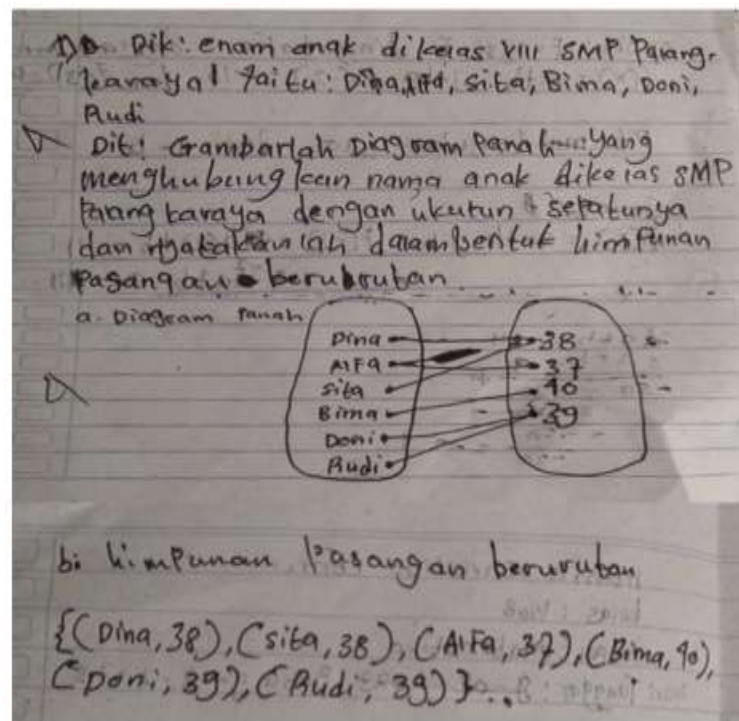 1) Dik: enam anak dikelas VIII SMP Parang-
karaya! Yaitu: Dina, Alfa, Sita, Bima, Doni,
Rudi
Dit! Grambarlah Diagram Panah yang
menghubungkan nama anak dikelas SMP
Parangkaraya dengan ukurun sepatunya
dan nyatakanlah dalam bentuk himpunan
Pasangan berubrutan
a. Diagram Panah
Dina 38
Alfa 37
Sita 40
Bima 39
Doni
Rudi
b. himpunan Pasangan berurutan
{(Dina, 38), (Sita, 38), (Alfa, 37), (Bima, 40),
(Doni, 39), (Rudi, 39)}..